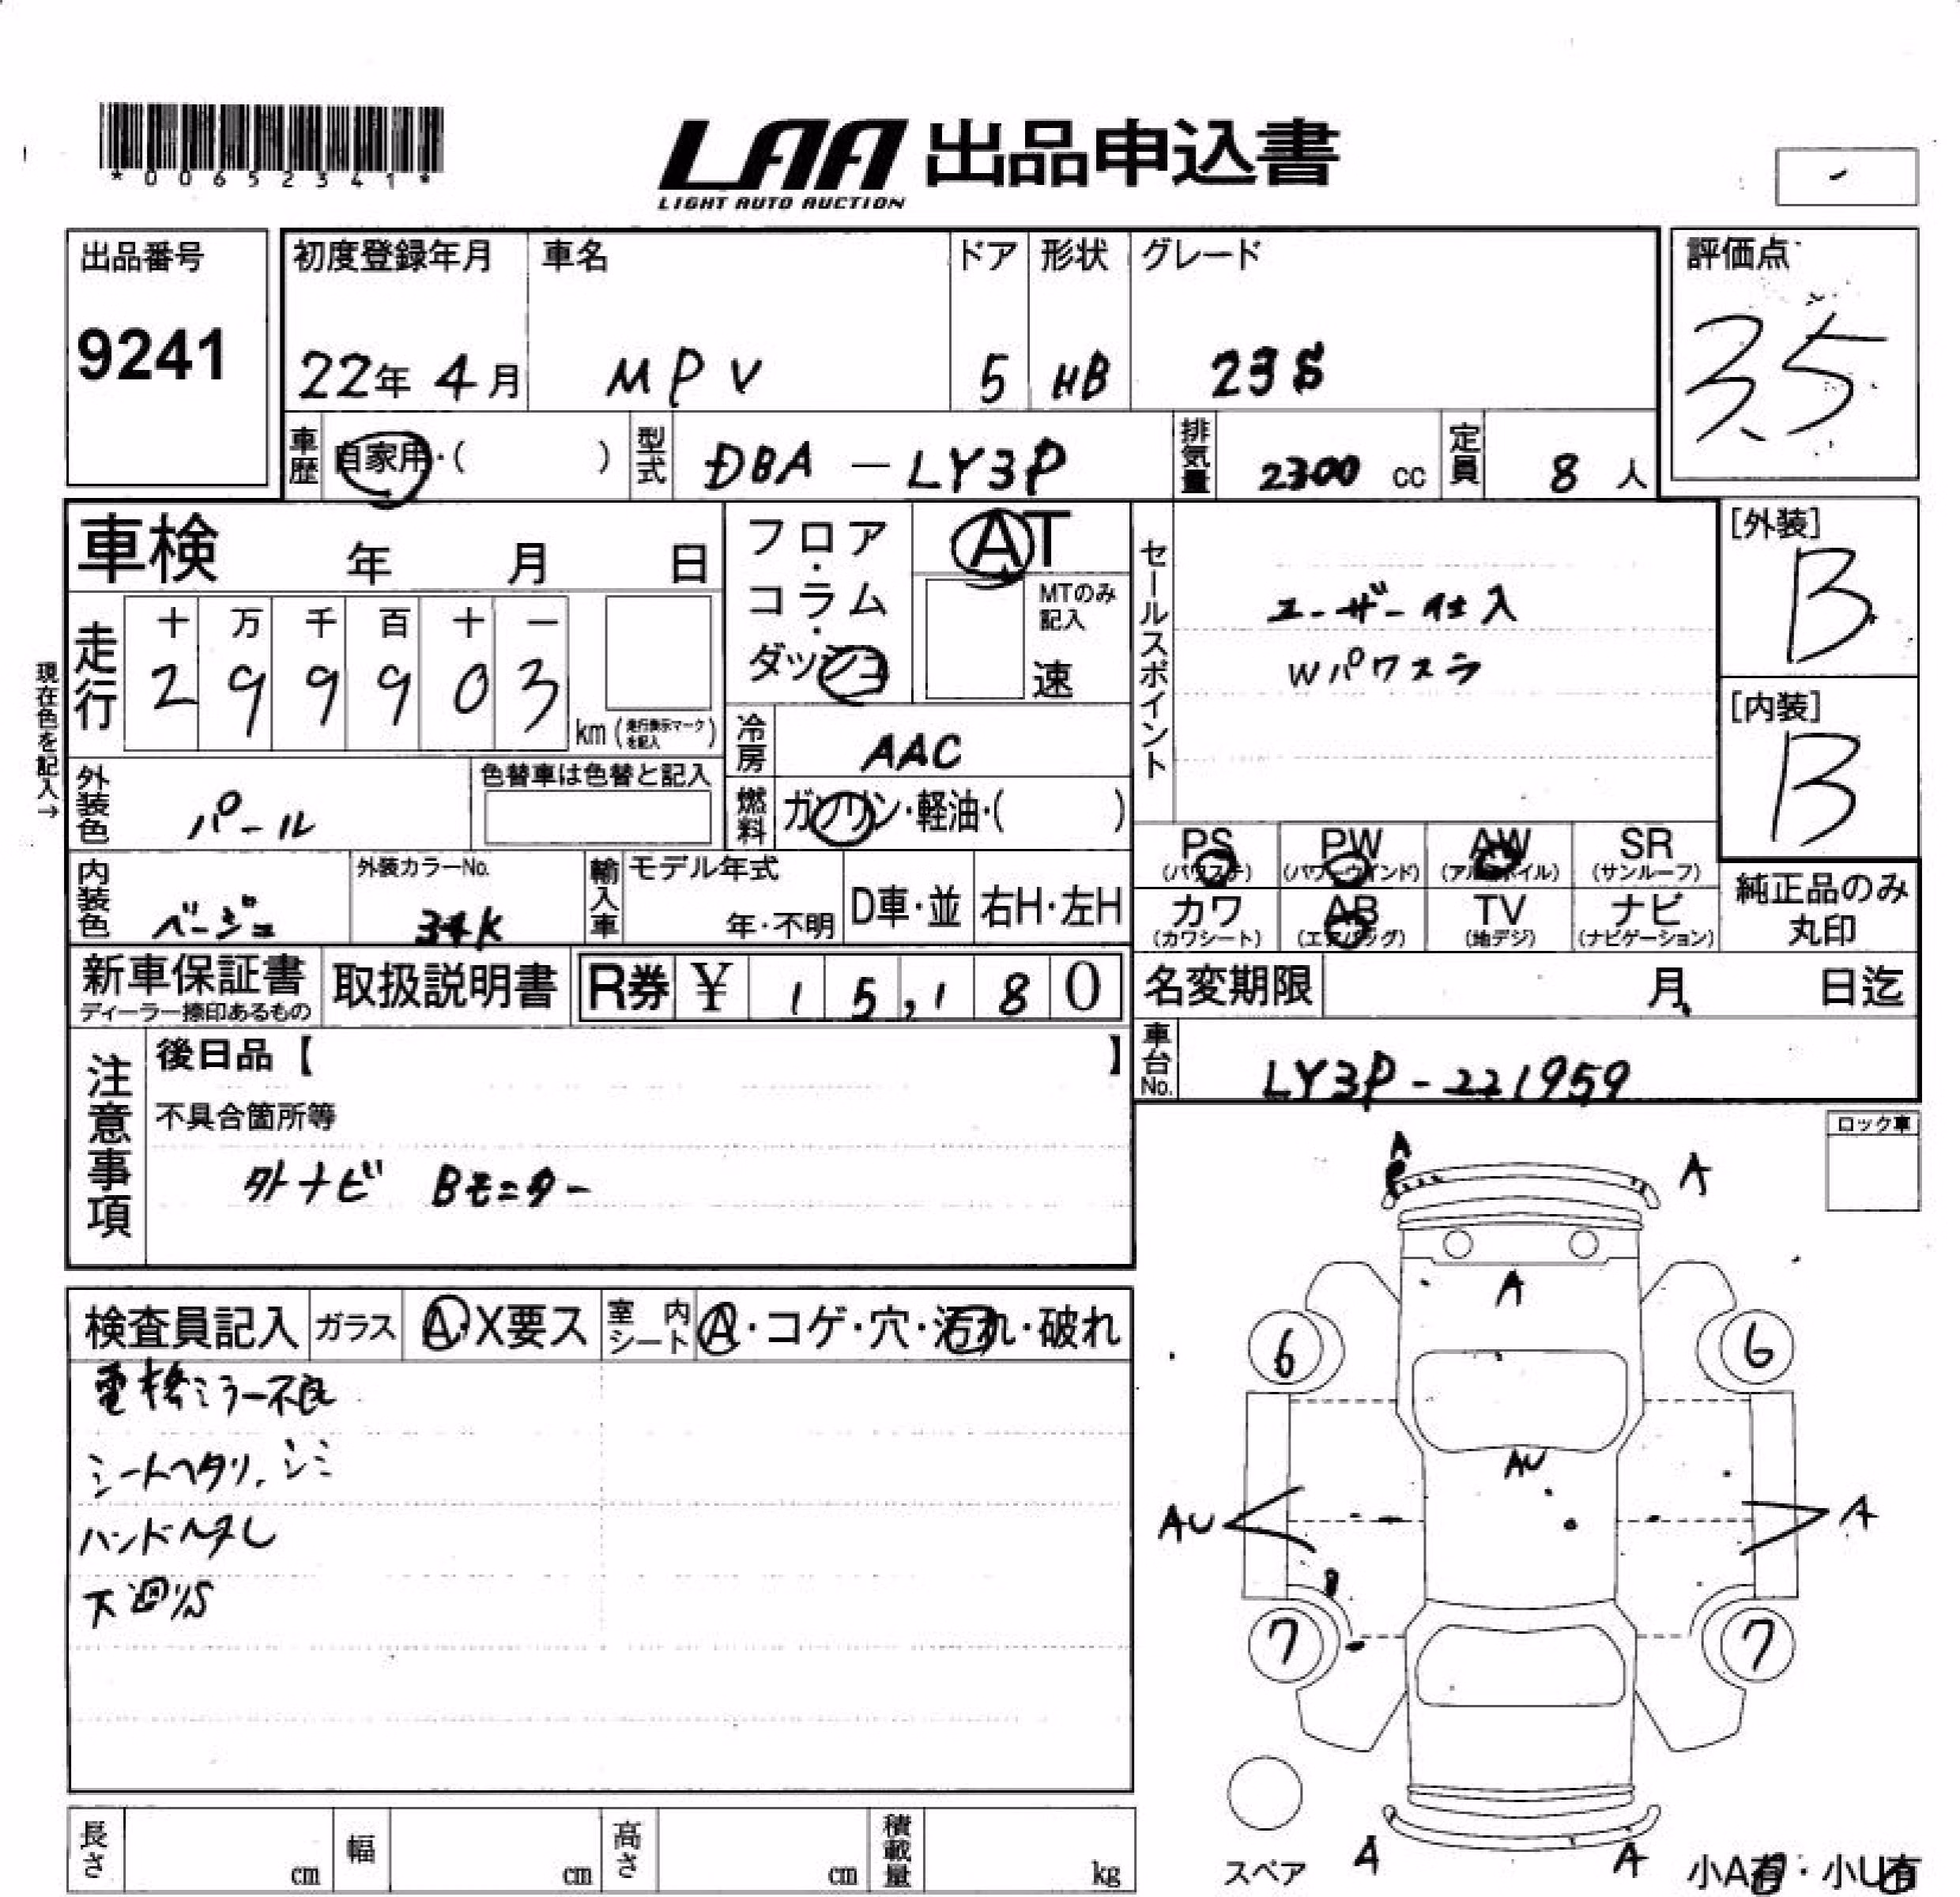 *00652341*
LAA 出品申込書
LIGHT AUTO AUCTION
出品番号
9241
初度登録年月 車名 ドア 形状 グレード
22年 4月 MPV 5 HB 23S
評価点
3.5
車歴 自家用・( ) 型式 DBA-LY3P 排気量 2300 cc 定員 8 人
車検 年 月 日
フロア・コラム・ダッシュ
AT
MTのみ記入
速
セールスポイント
ユーザー仕入
Wパワスラ
[外装]
B
[内装]
B
現在色を記入→
走行
十 万 千 百 十 一
2 9 9 9 0 3
km (走行表示マークを記入)
冷房 AAC
燃料 ガソリン・軽油・( )
外装色 パール
色替車は色替と記入
内装色 ベージュ
外装カラーNo.
34K
輸入車 モデル年式
年・不明 D車・並 右H・左H
PS PW AW SR
(パワステ) (パワーウインド) (アルミホイル) (サンルーフ)
カワ AB TV ナビ
(カワシート) (エアバッグ) (地デジ) (ナビゲーション)
純正品のみ
丸印
新車保証書
ディーラー捺印あるもの
取扱説明書
R券 ¥ 15,180
名変期限 月 日迄
車台No. LY3P-221959
注意事項
後日品【 】
不具合箇所等
外ナビ Bモニター
ロック車
検査員記入 ガラス A・X要ス 室内シート A・コゲ・穴・汚れ・破れ
電格ミラー不良
シートヘタリ、シミ
ハンドルスレ
下廻りS
A
A
A
6
6
AU
AU
A
7
7
A
A
スペア
小A有・小U有
長さ cm 幅 cm 高さ cm 積載量 kg